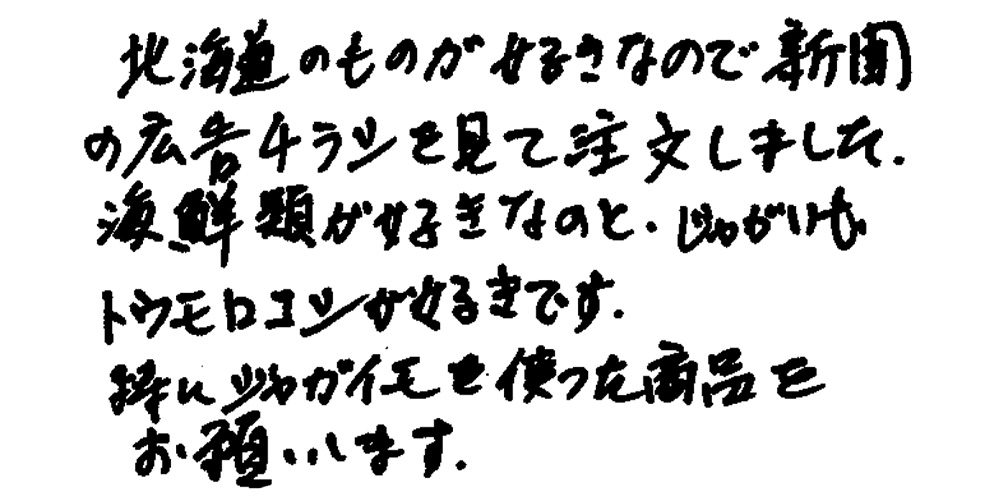 北海道のものが好きなので新聞
の広告チラシを見て注文しました.
海鮮類が好きなのと.じゃがいも
トウモロコシが好きです.
特にジャガイモを使った商品を
お願いします.